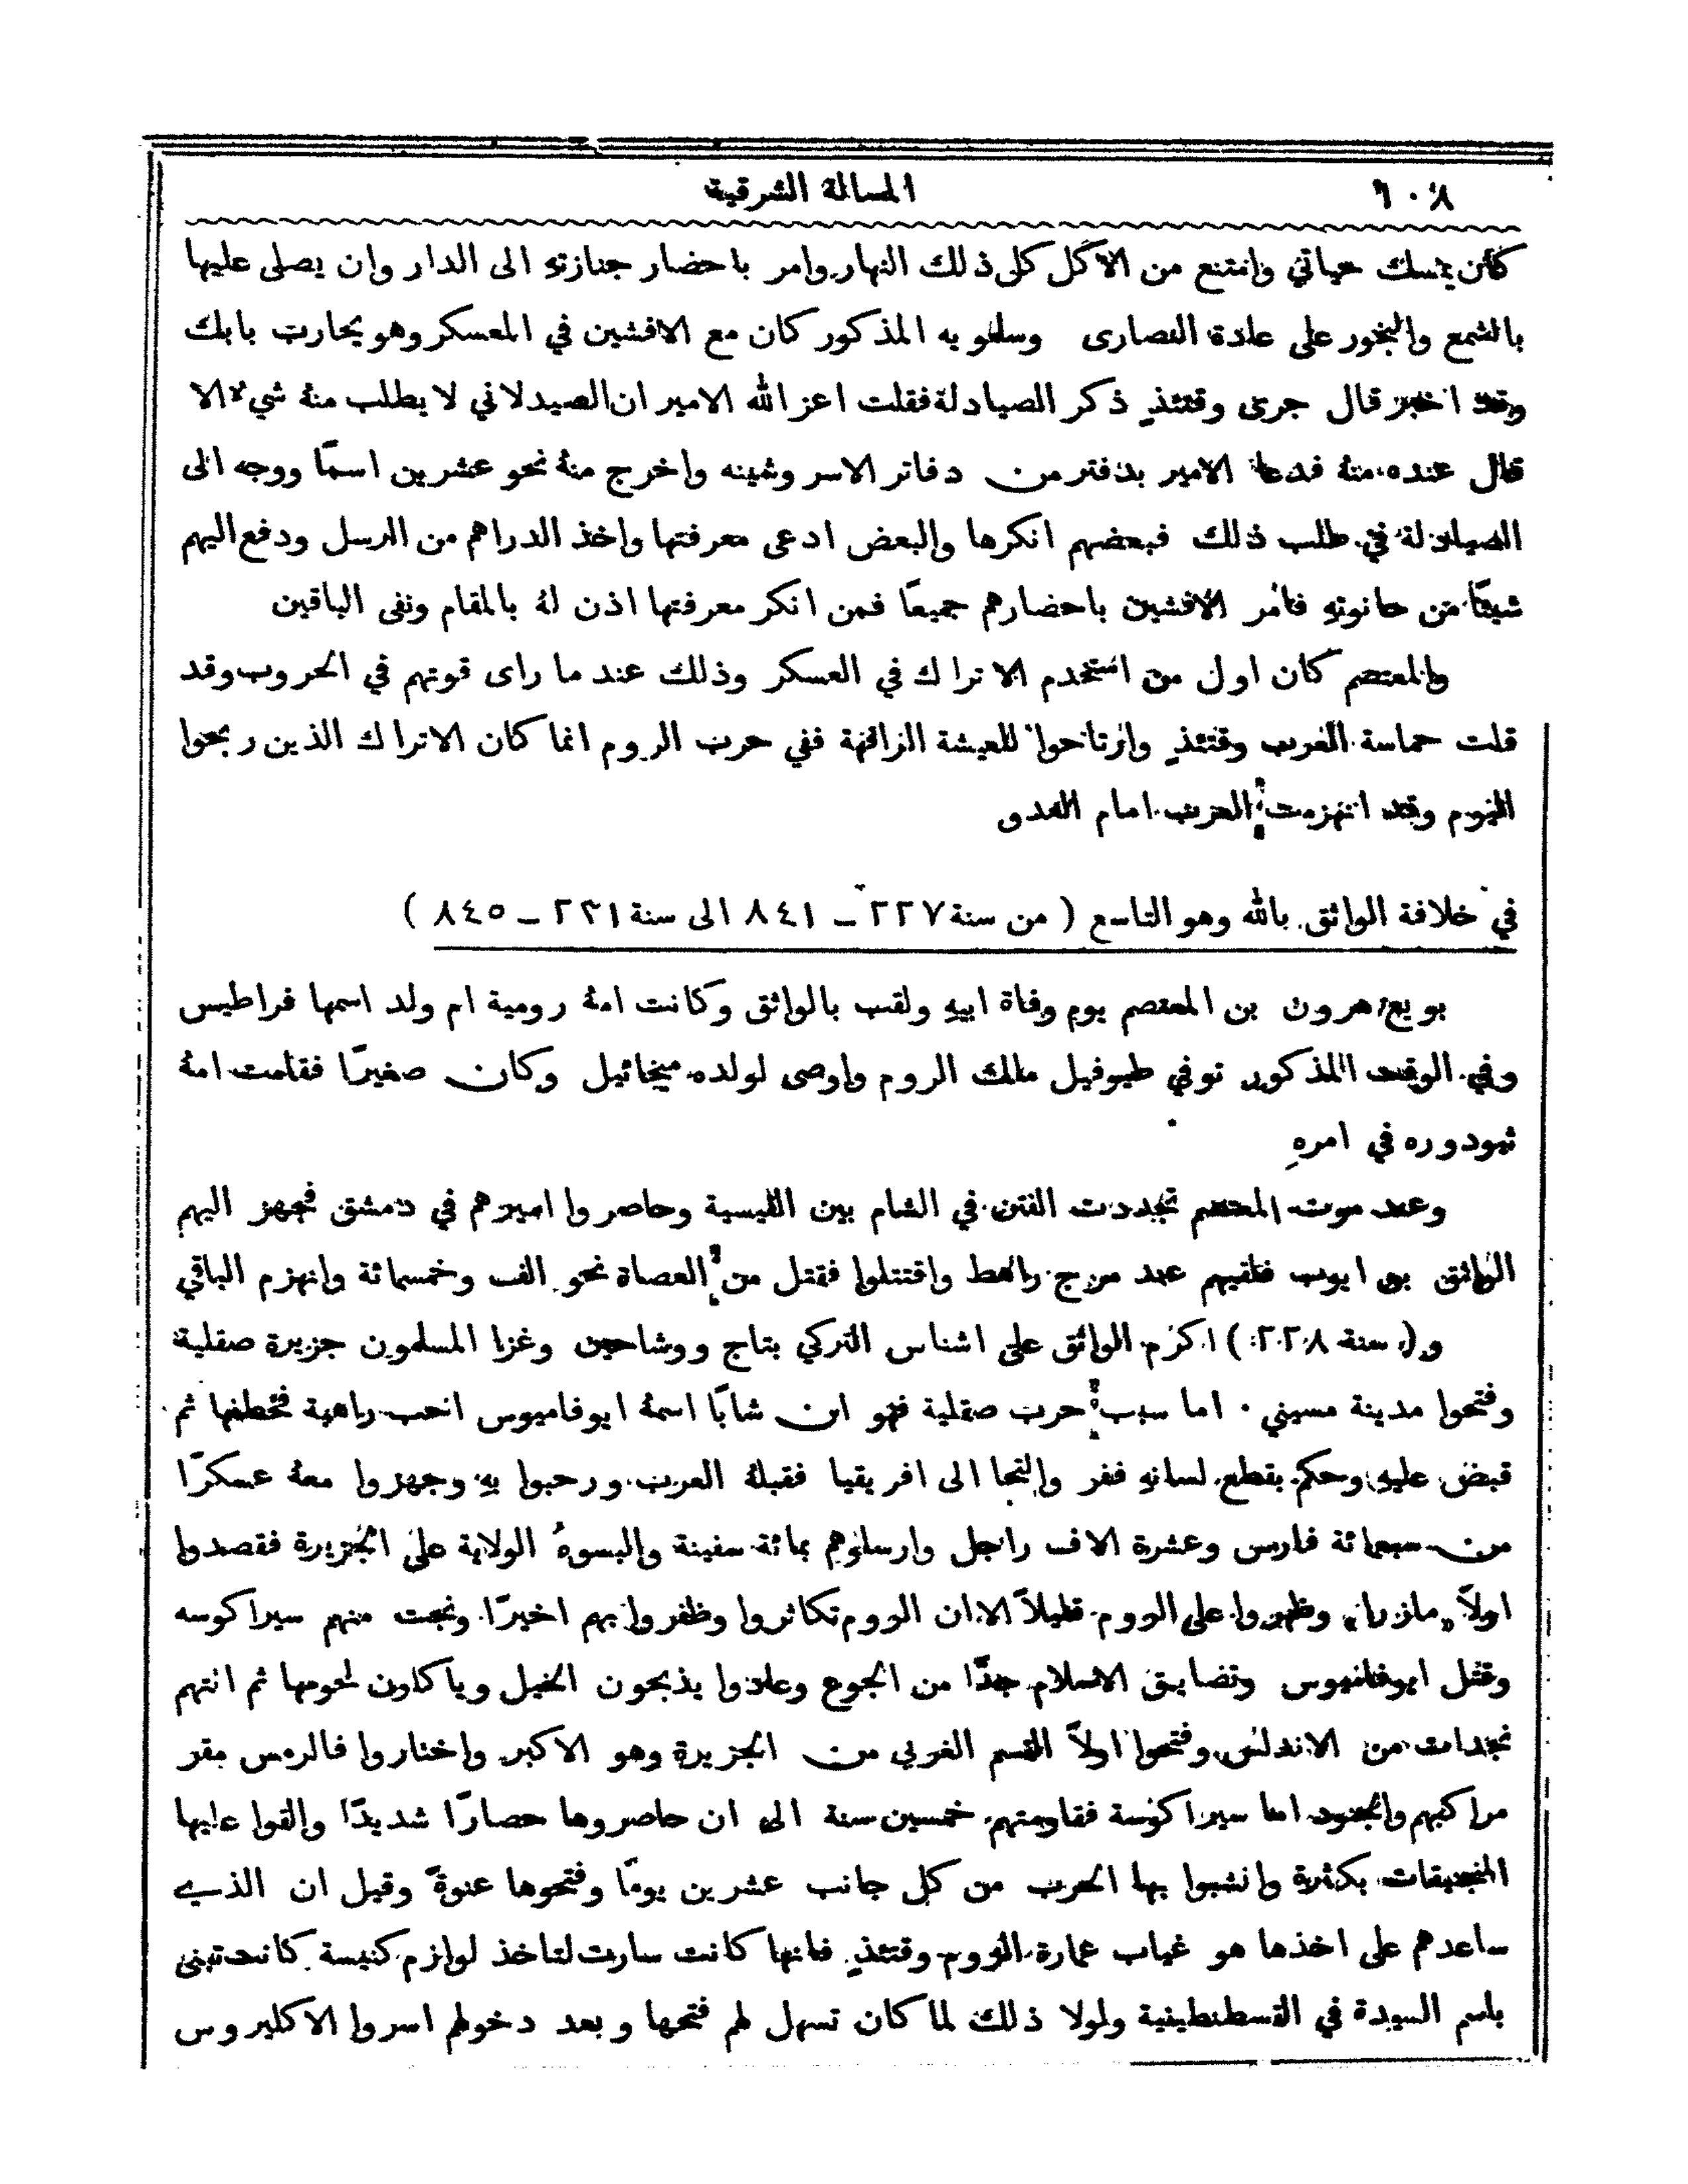 ٦٠٨ المسالة الشرقية
كان يمسك حياتي وامتنع من الاكل كل ذلك النهار وامر باحضار جنازته الى الدار وان يصلى عليها
بالشمع والبخور على عادة النصارى وسلمويه المذكور كان مع الافشين في المعسكر وهو يحارب بابك
وقد اخبر قال جرى وقتئذٍ ذكر الصيادلة فقلت اعز الله الامير ان الصيدلاني لا يطلب منهُ شيء الا
قال عنده منهُ فدعا الامير بدفتر من دفاتر الاسروشينه واخرج منهُ نحو عشرين اسمًا ووجه الى
الصيادلة في طلب ذلك فبعضهم انكرها والبعض ادعى معرفتها واخذ الدراهم من الرسل ودفع اليهم
شيئًا من حانوتهِ فامر الافشين باحضارهم جميعًا فمن انكر معرفتها اذن لهُ بالمقام ونفى الباقين
والمعتصم كان اول من استخدم الاتراك في العسكر وذلك عند ما راى قوتهم في الحروب وقد
قلت حماسة العرب وقتئذٍ وارتاحوا للعيشة الرافهة ففي حرب الروم انما كان الاتراك الذين ربحوا
اليوم وقد انهزمت العرب امام العدو
في خلافة الواثق بالله وهو التاسع ( من سنة ٢٢٧ – ٨٤١ الى سنة ٢٣١ – ٨٤٥ )
بويع هرون بن المعتصم يوم وفاة ابيهِ ولقب بالواثق وكانت امهُ رومية ام ولد اسمها قراطيس
وفي الوقت المذكور توفي طيوفيل مالك الروم واوصى لولده ميخائيل وكان صغيرًا فقامت امهُ
ثيودوره في امرهِ
وعند موت المعتصم تجددت الفتن في الشام بين القيسية وحاصروا اميرهم في دمشق فجهز اليهم
الواثق بن ايوب فلقيهم عند مرج راهط واقتتلوا فقتل من العصاة نحو الف وخمسمائة وانهزم الباقي
و( سنة ٢٢٨ ) اكرم الواثق على اشناس التركي بتاج ووشاحين وغزا المسلمون جزيرة صقلية
وفتحوا مدينة مسيني . اما سبب حرب صقلية فهو ان شابًا اسمهُ ايوفاميوس احب راهبة فخطفها ثم
قبض عليهِ وحكم بقطع لسانهِ ففر والتجا الى افريقيا فقبلهُ العرب ورحبوا بهِ وجهزوا معهُ عسكرًا
من سبعمائة فارس وعشرة الاف راجل وارسلوهم بمائة سفينة والبسوهُ الولاية على الجزيرة فقصدوا
اولاً «مازرا» وظهروا على الروم قليلاً الا ان الروم تكاثروا وظفروا بهم اخيرًا ونجت منهم سيراكوسه
وقتل ايوفاميوس وتضايق الاسلام جدًّا من الجوع وعادوا يذبحون الخيل وياكلون لحومها ثم اتتهم
نجدات من الاندلس وفتحوا اولاً القسم الغربي من الجزيرة وهو الاكبر واختاروا فالرمس مقر
مراكبهم والجنود اما سيراكوسة فقاومتهم خمسين سنة الى ان حاصروها حصارًا شديدًا والقوا عليها
المنجنيقات بكثرة وانشبوا بها الحرب من كل جانب عشرين يومًا وفتحوها عنوةً وقيل ان الذي
ساعدهم على اخذها هو غياب عمارة الروم وقتئذٍ فانها كانت سارت لتاخذ لوازم كنيسة كانت تبنى
باسم السيدة في القسطنطينية ولولا ذلك لما كان تسهل لهم فتحها وبعد دخولهم اسروا الاكليروس